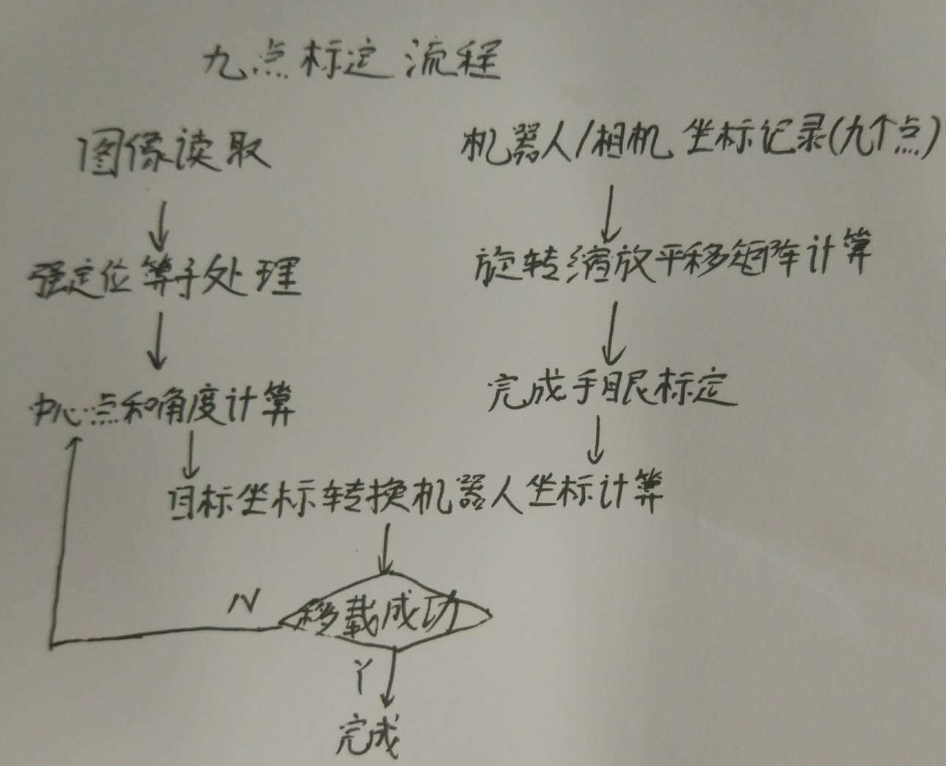 九点标定流程
图像读取
机器人/相机 坐标记录(九个点)
强定位算子处理
旋转缩放平移矩阵计算
中心点和角度计算
完成手眼标定
目标坐标转换机器人坐标计算
移载成功
N
Y
完成